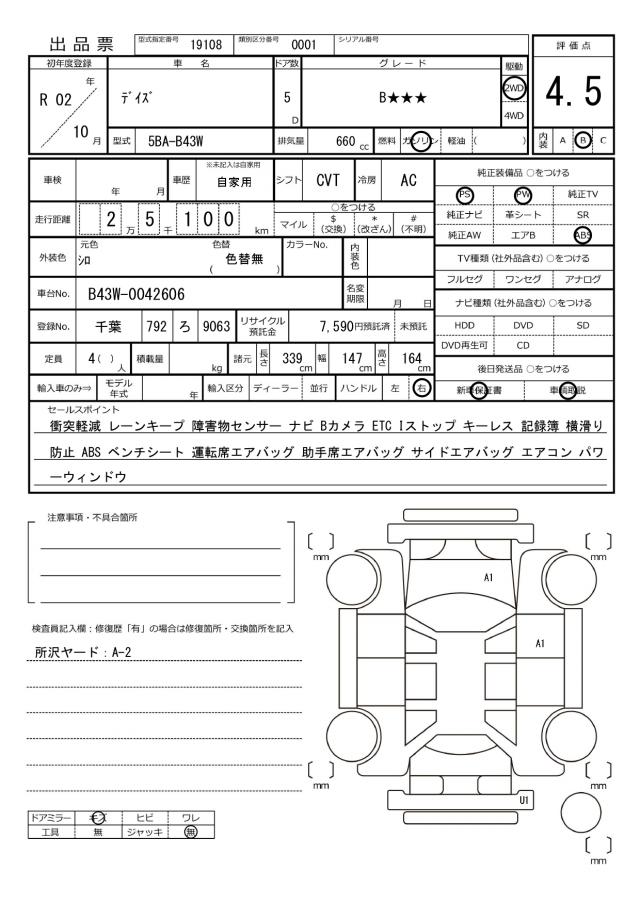 出品票 型式指定番号 19108 類別区分番号 0001 シリアル番号
評価点
4.5
初年度登録 車名 ドア数 グレード 駆動
R 02 年 10 月
ﾃﾞｲｽﾞ 5 D B★★★ 2WD
4WD
型式 5BA-B43W 排気量 660 cc 燃料 ガソリン 軽油 ( ) 内装 A B C
車検 年 月 車歴 ※未記入は自家用 自家用 シフト CVT 冷房 AC
走行距離 2 万 5 千 1 0 0 km ○をつける
マイル $(交換) *(改ざん) #(不明)
外装色 元色 ｼﾛ 色替 ( 色替無 ) カラーNo. 内装色
車台No. B43W-0042606 名変期限 月 日
登録No. 千葉 792 ろ 9063 リサイクル預託金 7,590円預託済 未預託
定員 4( ) 人 積載量 kg 諸元 長さ 339 cm 幅 147 cm 高さ 164 cm
輸入車のみ⇒ モデル年式 年 輸入区分 ディーラー 並行 ハンドル 左 右
純正装備品 ○をつける
PS PW 純正TV
純正ナビ 革シート SR
純正AW エアB ABS
TV種類(社外品含む)○をつける
フルセグ ワンセグ アナログ
ナビ種類(社外品含む)○をつける
HDD DVD SD
DVD再生可 CD
後日発送品 ○をつける
新車保証書 車輌取説
セールスポイント
衝突軽減 レーンキープ 障害物センサー ナビ Bカメラ ETC Iストップ キーレス 記録簿 横滑り
防止 ABS ベンチシート 運転席エアバッグ 助手席エアバッグ サイドエアバッグ エアコン パワ
ーウィンドウ
注意事項・不具合箇所
検査員記入欄：修復歴「有」の場合は修復箇所・交換箇所を記入
所沢ヤード：A-2
ドアミラー キズ ヒビ ワレ
工具 無 ジャッキ 無
[ ] mm
[ ] mm
A1
A1
[ ] mm
[ ] mm
U1
[ ] mm